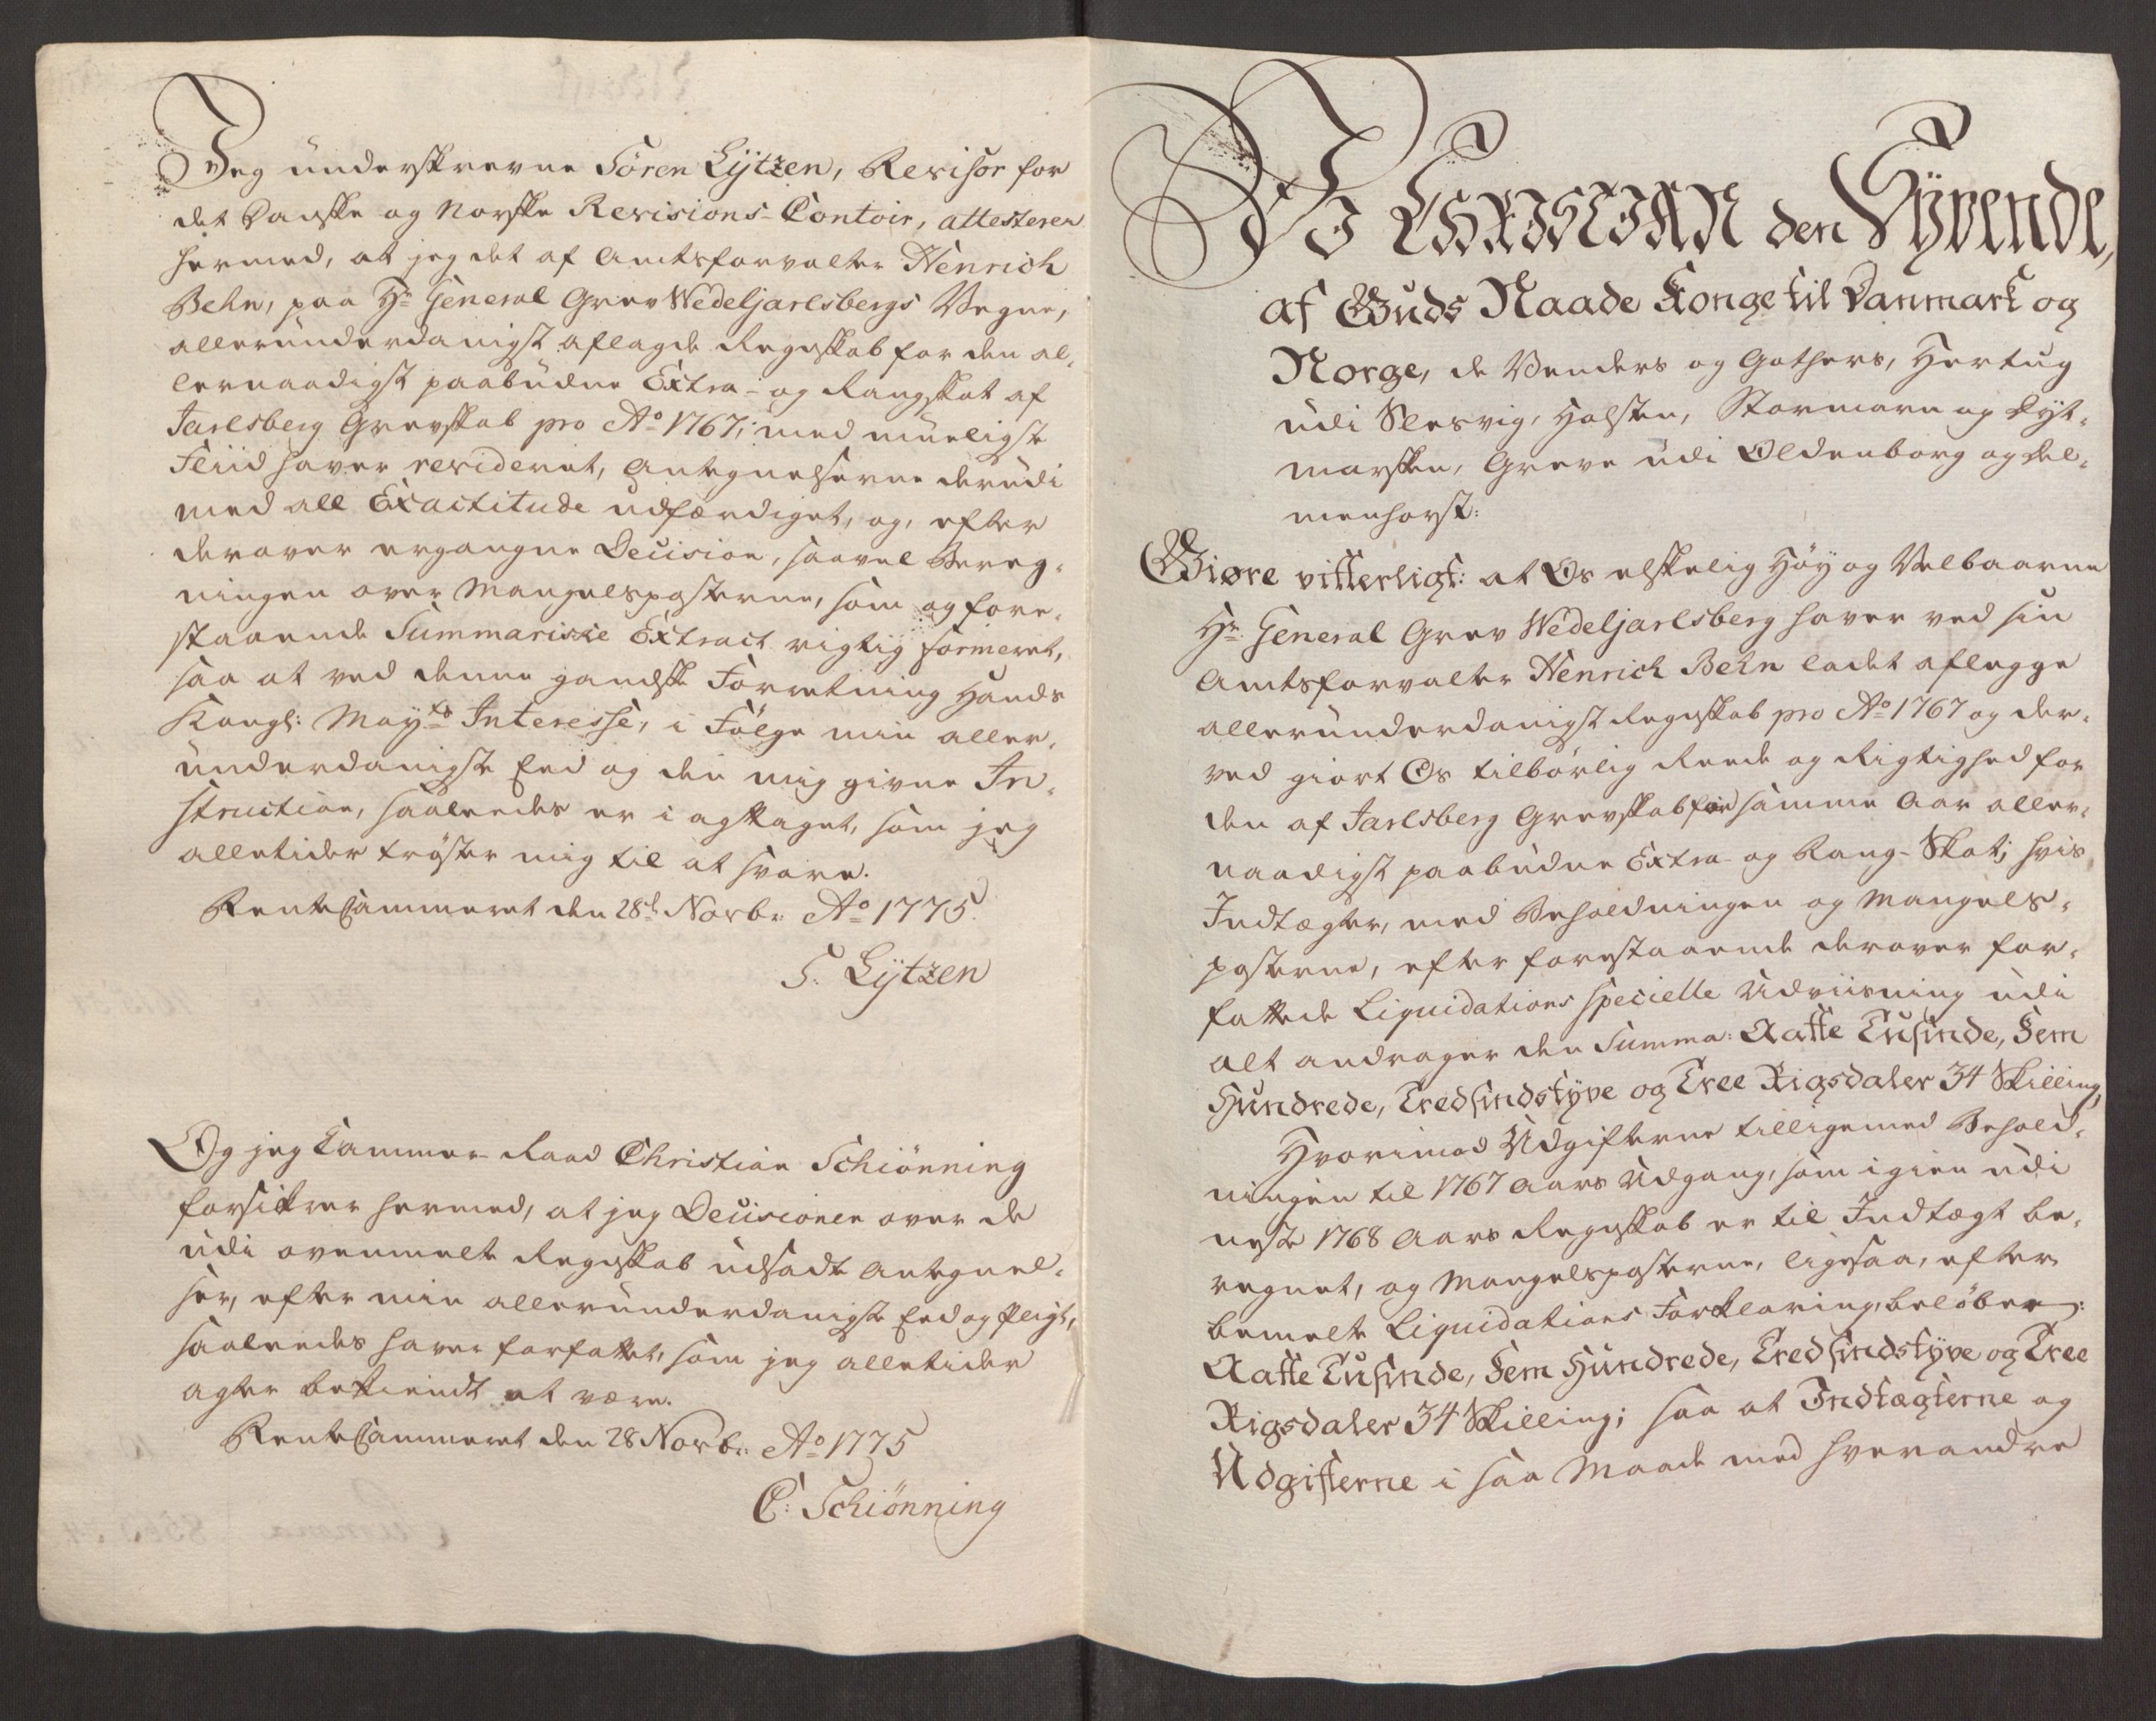 Jeg underskrevne Sören Lÿtzen, Revisor for
det Danske og Norske Revisions-Contoir, attesterer
hermed, at jeg det af Amtsforvalter Henrich
Behn, paa Hr. General Grev Wedeljarlsbergs Vegne,
allerunderdanigst aflagde Regnskab for den al-
lernaadigst paabudne Extra- og Rangskat af
Jarlsberg Grevskab pro Ao 1767, med mueligste
Fliid haver revideret, Antegnelserne derudi
med all Exactitude udfærdiget, og, efter
derover ergangne Decision, saavel Bereg-
ningen over Mangelsposterne, som og fore-
staaende Summariske Extract rigtig formeret,
saa at ved denne gandske Forretning Hands
Kongl: Mayts Interesse, i Fölge min aller-
underdanigste Eed og den mig givne In-
struction, saaledes er i agttaget, som jeg
alletider tröster mig til at svare.
RenteCammeret den 28d Novbr. Ao 1775.
S. Lÿtzen
Og jeg Cammer-Raad Christian Schiönning
forsikrer hermed, at jeg Decisionen over de
udi ovenmelte Regnskab udsadte Antegnel-
ser, efter min allerunderdanigste Eed og Pligt,
saaledes haver forfattet, som jeg alletider
agter bekiendt at være.
RenteCammeret den 28 Novbr. Ao 1775
C: Schiönning
VI CHRISTIAN den Syvende,
af Guds Naade Konge til Danmark og
Norge, de Venders og Gothers, Hertug
udi Slesvig, Holsten, Stormarn og Dyt-
marsken, Greve udi Oldenborg og Del-
menhorst:
Giøre vitterligt: at Os elskelig Höy og Velbaarne
Hr. General Grev Wedeljarlsberg haver ved sin
Amtsforvalter Henrich Behn ladet aflegge
allerunderdanigst Regnskab pro Ao 1767 og der-
ved giort Os tilbørlig Reede og Rigtighed for
den af Jarlsberg Grevskab for samme Aar aller-
naadigst paabudne Extra- og Rang-Skat; hvis
Indtægter, med Beholdningen og Mangels-
posterne, efter forestaaende derover for-
fattede Liquidations specielle Udviisning udi
alt andrager den Summa: Aatte Tusinde, Fem
Hundrede, Tredsindstyve og Tree Rigsdaler 34 Skilling,
Hvorimod Udgifterne tilligemed Behold-
ningen til 1767 Aars Udgang, som igien udi
neste 1768 Aars Regnskab er til Indtægt be-
regnet, og Mangelsposterne, ligesaa, efter
bemelte Liquidations Forklaring, beløber:
Aatte Tusinde, Fem Hundrede, Tredsindstyve og Tree
Rigsdaler 34 Skilling; saa at Indtægterne og
Udgifterne i saa Maade med hverandre